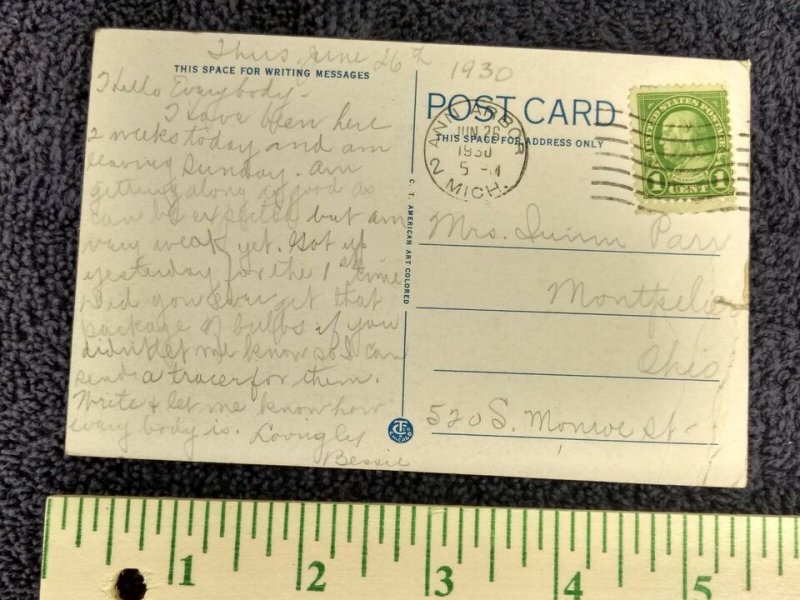 Thurs, June 26th 1930
THIS SPACE FOR WRITING MESSAGES
Hello Everybody-
I have been here
2 weeks today and am
leaving Sunday. am
getting along as good as
can be expected but am
very weak yet. Got up
yesterday for the 1st time
Did you ever get that
package of bulbs if you
didn't let me know so I can
send a tracer for them.
Write & let me know how
every body is. Lovingly
Bessie
C. T. AMERICAN ART COLORED
CHICAGO
POST CARD
THIS SPACE FOR ADDRESS ONLY
ANN ARBOR
JUN 26
1930
5 - M
2 MICH.
UNITED STATES POSTAGE
1 CENT 1
Mrs. Quinn Parr
Montpelier
Ohio
520 S. Monroe St-
1 2 3 4 5